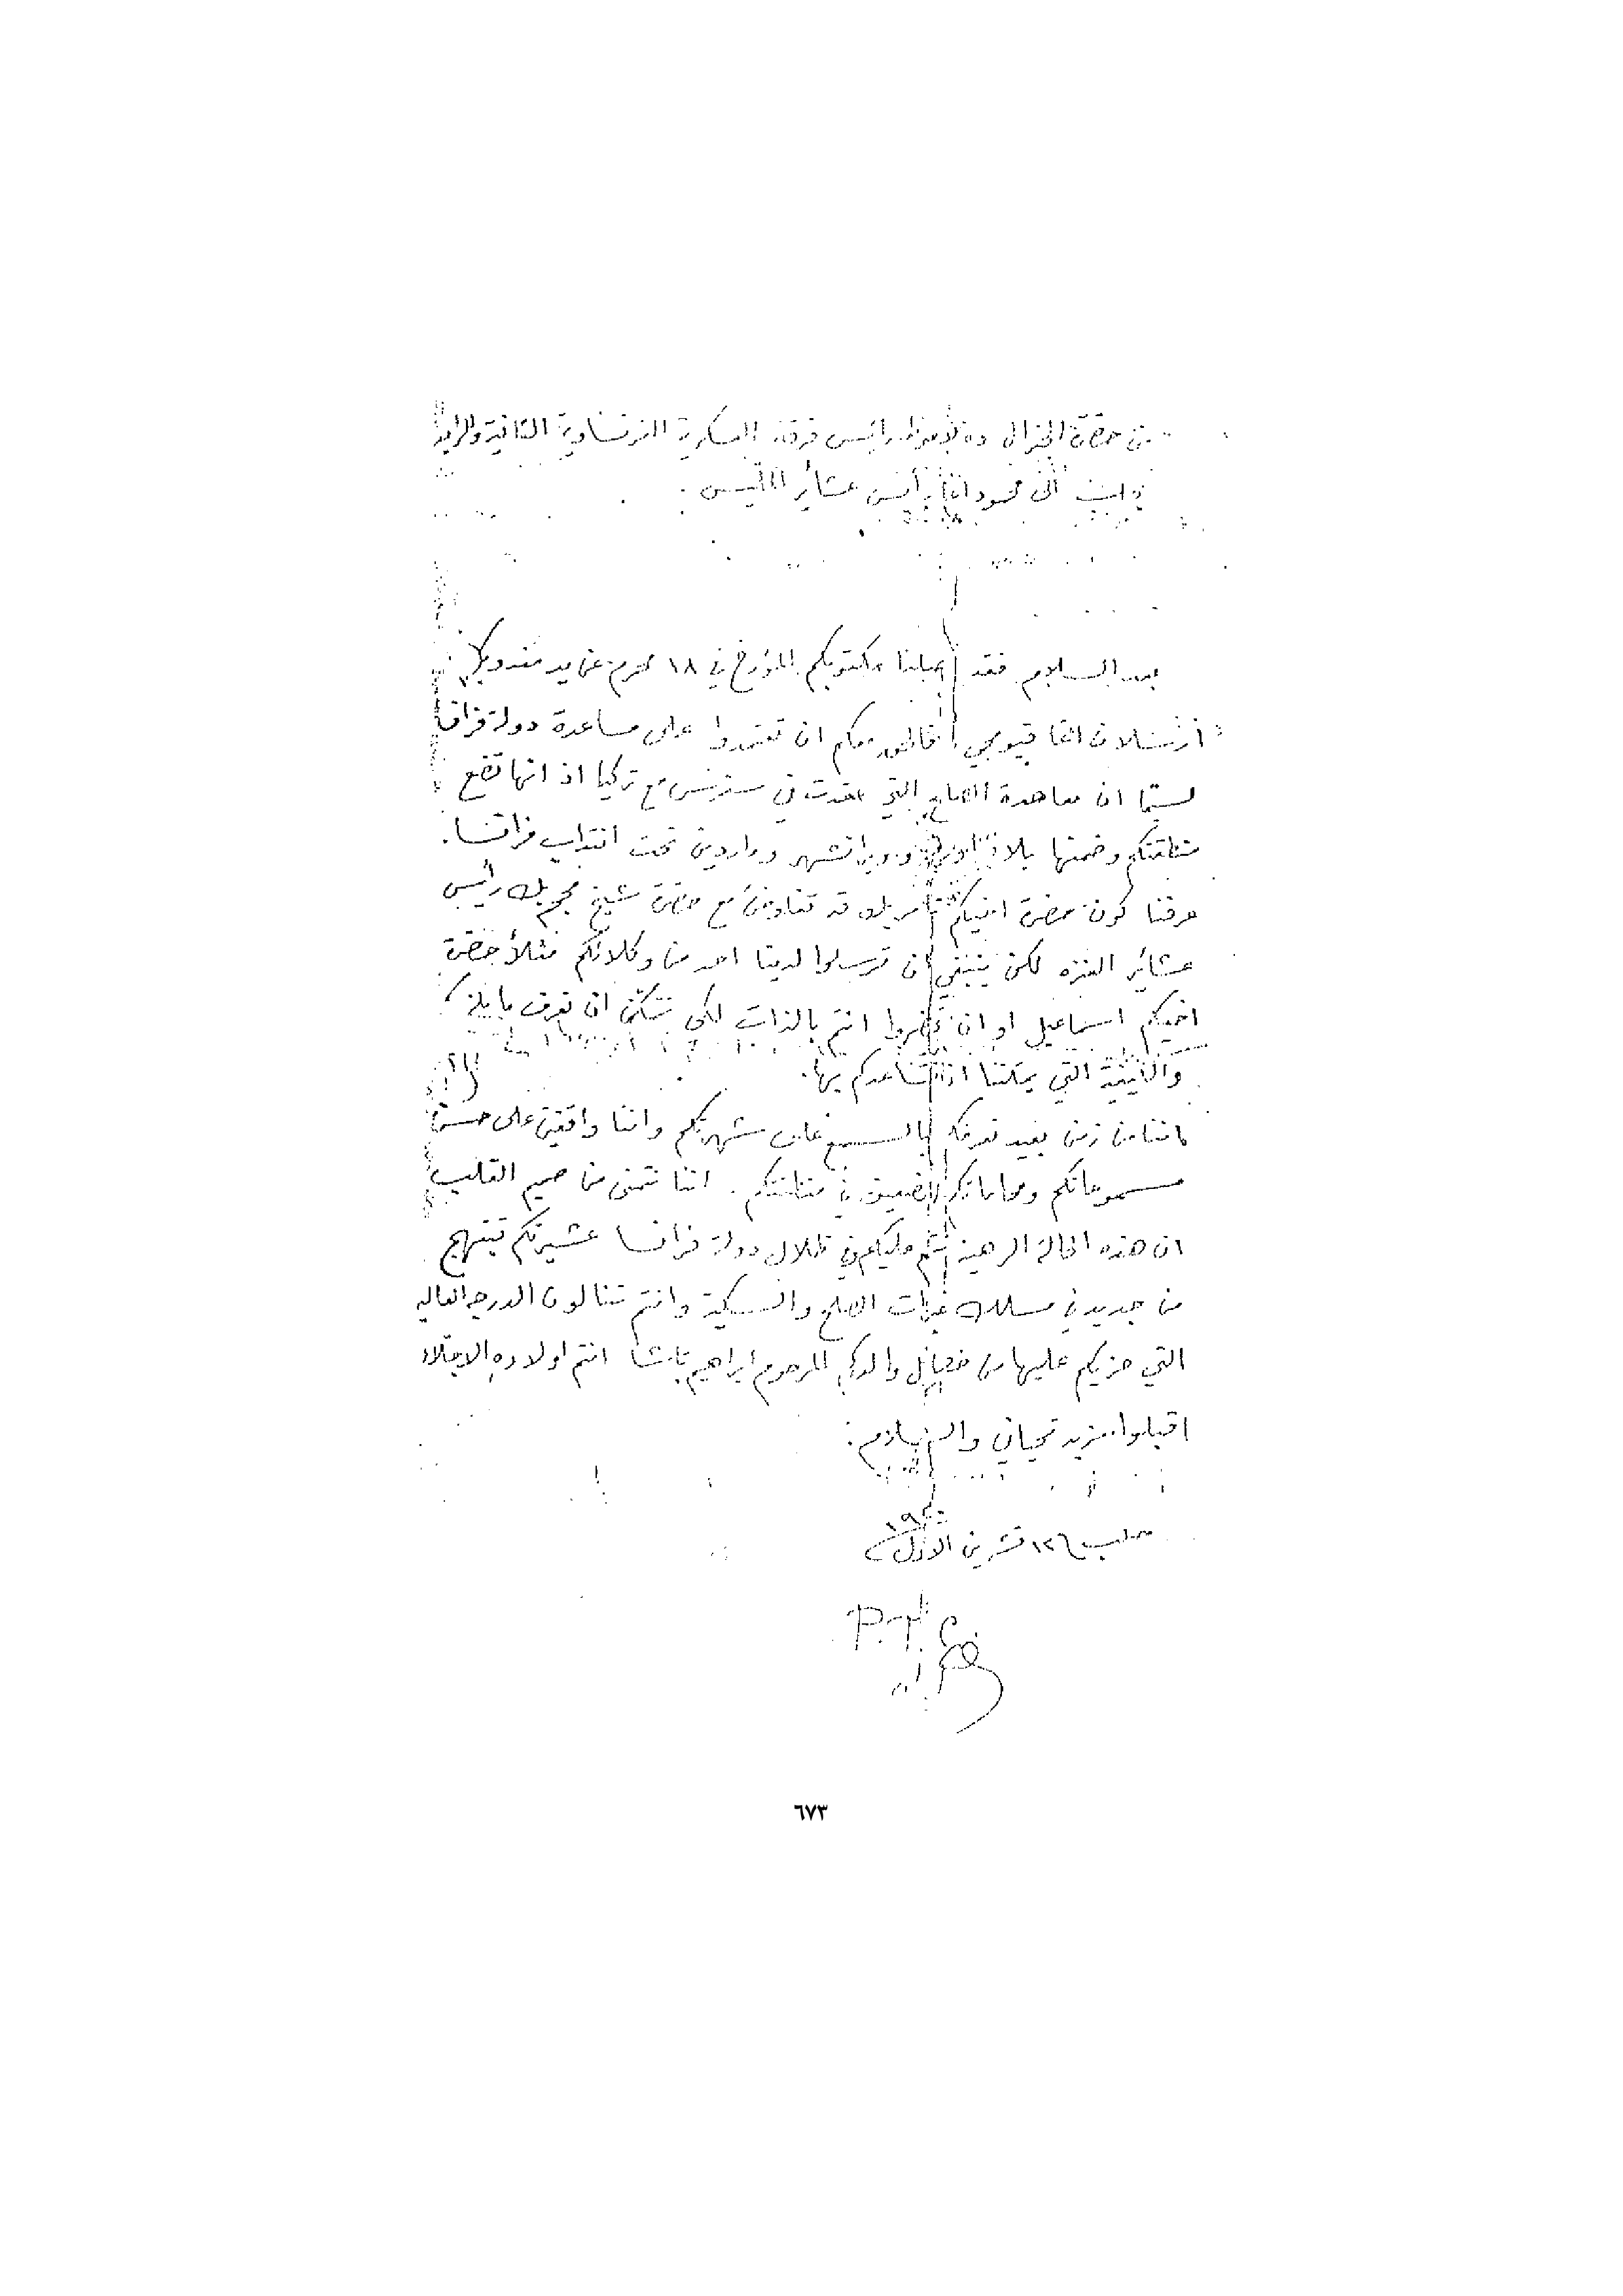 من حضرة الجنرال ده لاموط رائيس فرقة العسكرية الفرنساوية الثانية
الى محمود اغا رائيس عشائر الملليس .
بعد السلام فقد مكتوبكم المؤرخ في ١٨ محرم عن يد مندوبكم
اغا ان تعتمدوا على مساعدة دولة فرانسا
لسيّما ان معاهدة الصلح التي عقدت في مع تركيا اذ انها تضع
منطقتكم وضمنها بلاد ويرانشهر وماردين تحت انتداب فرانسا .
عرفنا كون حضرة اخيكم تامر بك قد تفاوض مع حضرة شيخ مجحم بك رأيس
عشائر العنزه لكن ينبغي ان ترسلوا لدينا احد من وكلائكم مثلاً حضرة
اخيكم اسماعيل او ان تحضروا انتم بالذات لكي نتمكن ان نعرف ما يلزمكم
التي يمكننا ان نساعدكم بها .
اننا من زمن بعيد نعرفكم بالسمع على شهرتكم واننا واقفين على حسن
مسموعاتكم في منطقتكم . اننا نتمنى من صميم القلب
ان هذه الحالة الرهينة عليكم في ظلال دولة فرانسا عشيرتكم تبتهج
من جديد في مسلك الصلح والسكينة وانتم تنالون الدرجه العاليه
التي حزيكم عليها من فضايل والدكم المرحوم ابراهيم باشا انتم اولاده
اقبلوا مزيد تحياتي والسلام .
حلب تشرين الاول ١٩٢٠
٦٧٣